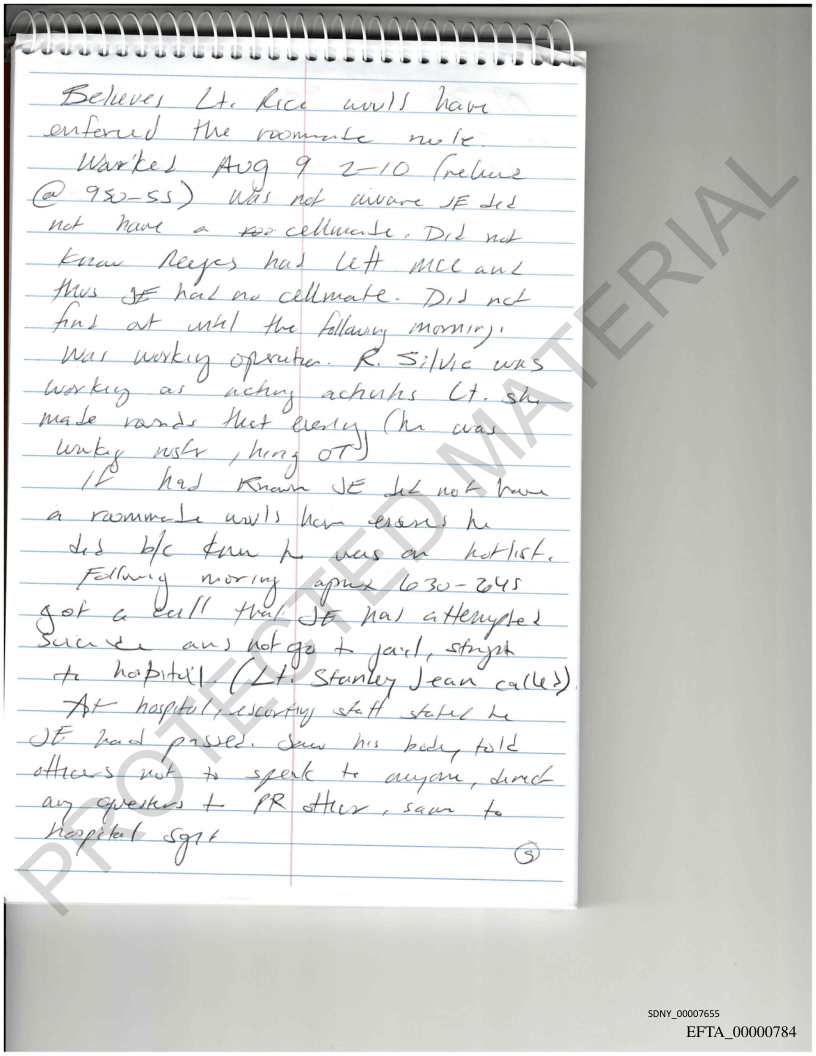 Believes Lt. Rice would have
enforced the roommate rule.
Worked Aug 9 2-10 (relieve
@ 950-55) was not aware JE did
not have a cellmate. Did not
know Reyes had left MCC and
thus JE had no cellmate. Did not
find out until the following morning.
Was working operation. R. Silvia was
working as acting Lt. she
made rounds that evening (he was
working OT)
If had known JE did not have
a roommate would have ensured he
did b/c knew he was on hotlist.
Following morning aprox 630-645
got a call that JE had attempted
suicide and not go to jail, straight
to hospital. (Lt. Stanley Jean called).
At hospital, escorting staff stated he
JE had passed. Saw his body, told
officers not to speak to anyone, direct
any questions to PR officer, same to
hospital sgt
5
PROTECTED MATERIAL
SDNY_00007655
EFTA_00000784